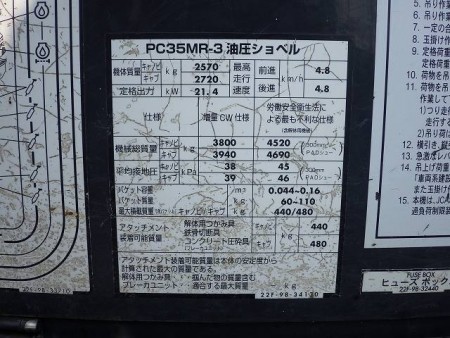 PC35MR-3 油圧ショベル
機体質量 キャノピ kg 2570 最高 前進 km/h 4.8
キャブ 2720 走行
定格出力 kW 21.4 速度 後進 4.8
仕様 増量CW仕様 労働安全衛生法による最も不利な仕様
機械総質量 キャノピ kg 3800 4520
キャブ 3940 4690
平均接地圧 キャノピ kPa 38 45
キャブ 39 46
バケット容量 m3 0.044~0.16
バケット質量 kg 60~110
最大積載質量 キャノピ/キャブ kg 440/480
アタッチメント 解体用つかみ具 キャノピ 440
装着可能質量 鉄骨切断具 kg
コンクリート圧砕具 キャブ 480
アタッチメント装着可能質量は本体の安定度から
計算された最大の質量である。
解体用つかみ具・・掴んだ物の質量を含む
ブレーカユニット・・適合する最大質量
kg
22F-98-34130
22F-98-33710
FUSE BOX
ヒューズ ボック
22F-98-32440
5. 吊り作
6. 吊り作
7. 一定の
8. 玉掛け作
9. 定格荷重
10. 荷物を吊
11. 荷物を吊
作業して
1)つり走
走行する
2)吊り荷
12. 横引き、縦
13. 急激なレバ
14. 吊上荷重
また玉掛け
15. 本機は、JC
過負荷制限